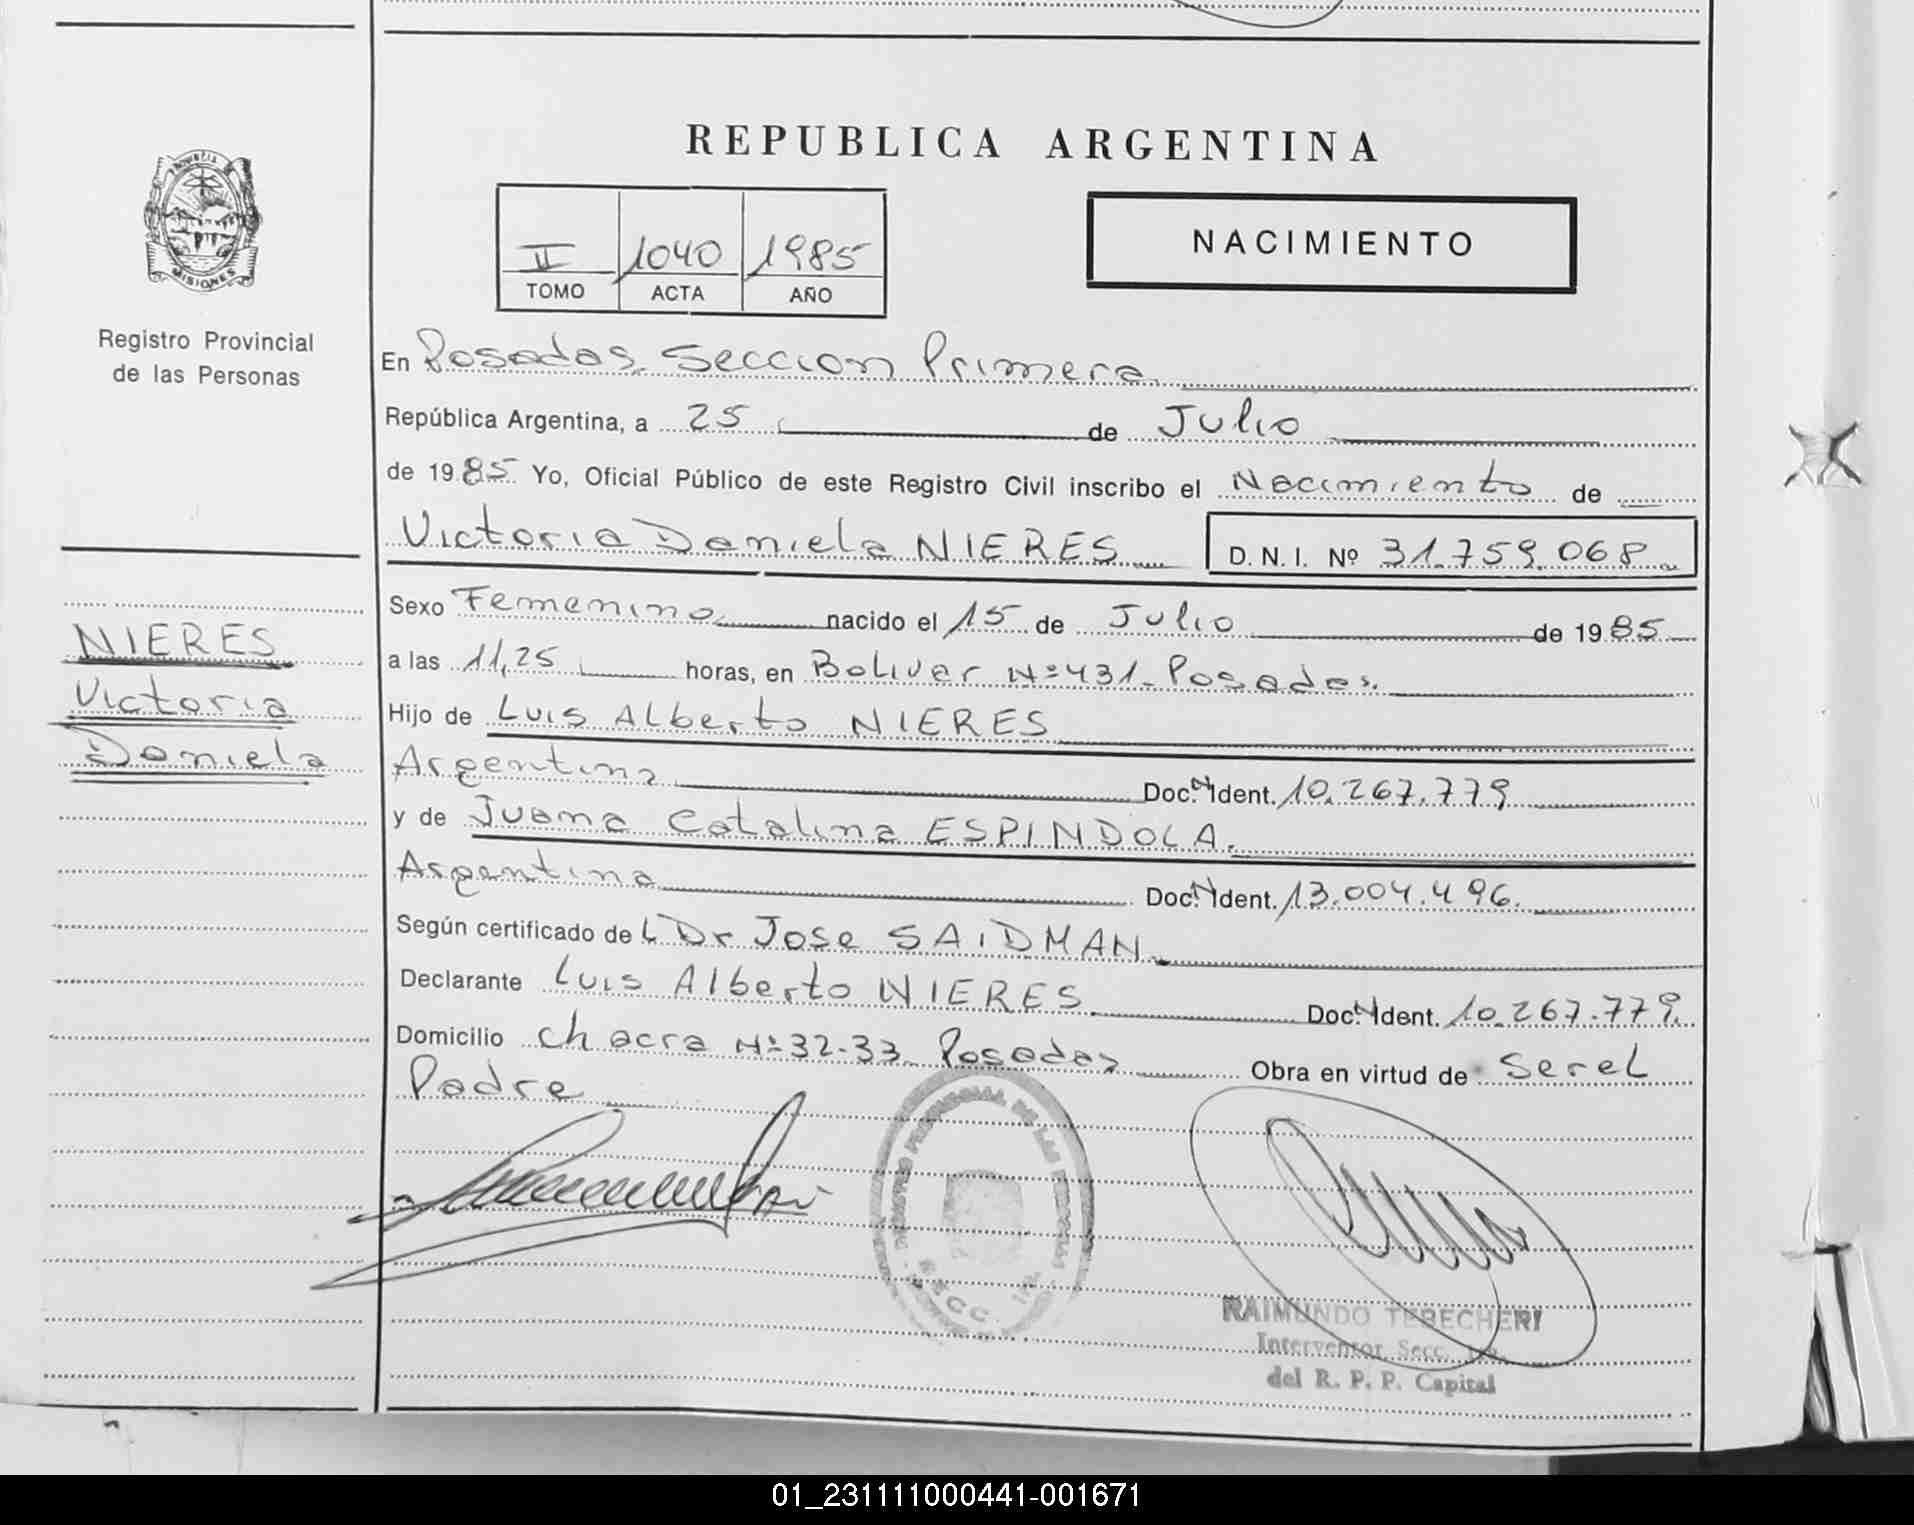 REPUBLICA ARGENTINA
PROVINCIA
MISIONES
Registro Provincial
de las Personas
II 1040 1985
TOMO ACTA AÑO
NACIMIENTO
En Posadas, Seccion Primera
República Argentina, a 25 de Julio
de 1985 Yo, Oficial Público de este Registro Civil inscribo el Nacimiento de
Victoria Daniela NIERES D. N. I. Nº 31.759.068
Sexo Femenino nacido el 15 de Julio de 1985
a las 11,25 horas, en Bolivar Nº 431- Posadas.
Hijo de Luis Alberto NIERES
Argentina Doc. N Ident. 10.267.779
y de Juana Catalina ESPINDOLA.
Argentina Doc. N Ident. 13.004.496.
Según certificado del Dr Jose SAIDMAN
Declarante Luis Alberto NIERES Doc. N Ident. 10.267.779.
Domicilio chacra Nº 32-33 Posadas Obra en virtud de ser el
Padre
NIERES
Victoria
Daniela
PROVINCIAL DE LAS
SECC. 1ra.
RAIMUNDO TERECHERI
Interventor Secc. 1ra.
del R. P. P. Capital
01_231111000441-001671